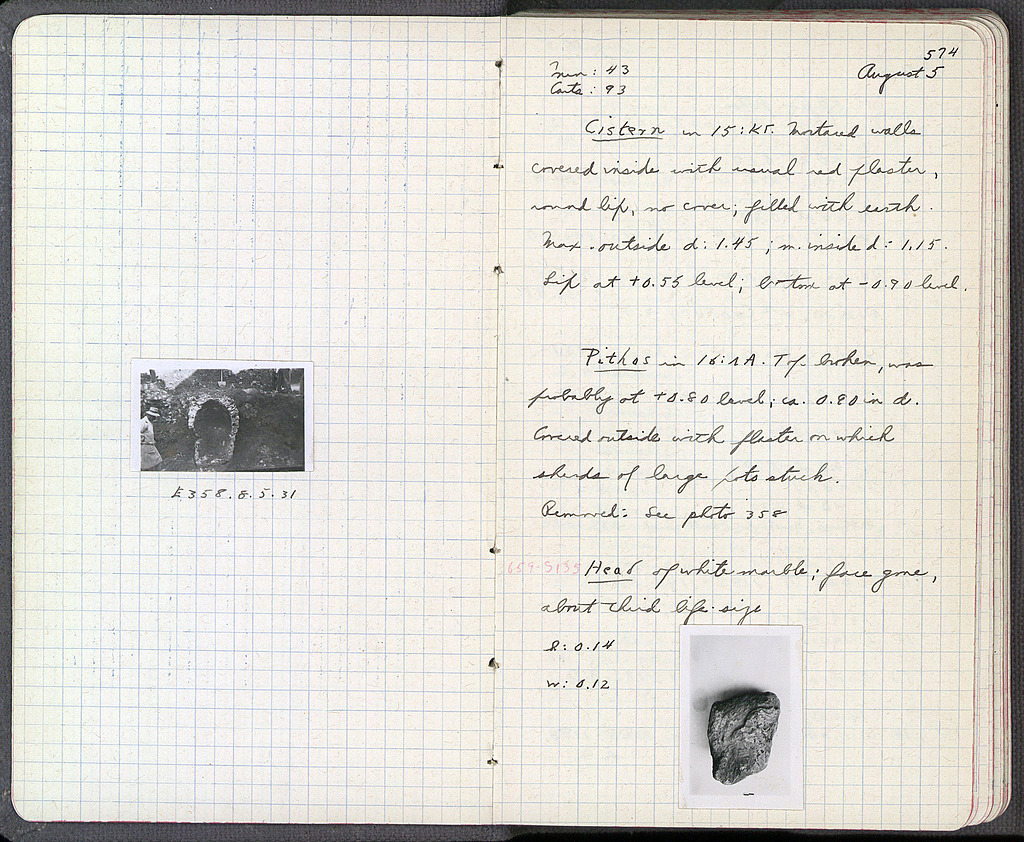 E358.8.5.31
574
August 5
Men: 43
Carts: 93
Cistern in 15:ΚΓ. Mortared walls
covered inside with usual red plaster,
round lip, no cover; filled with earth.
Max. outside d: 1.45; m. inside d: 1.15.
Lip at +0.55 level; bottom at -0.90 level.
Pithos in 16:ΛΑ. Top broken, was
probably at +0.80 level; ca. 0.80 in d.
Covered outside with plaster on which
sherds of large pots stuck.
Removed: See photo 358
659-S135 Head of white marble; face gone,
about third life-size
h: 0.14
w: 0.12